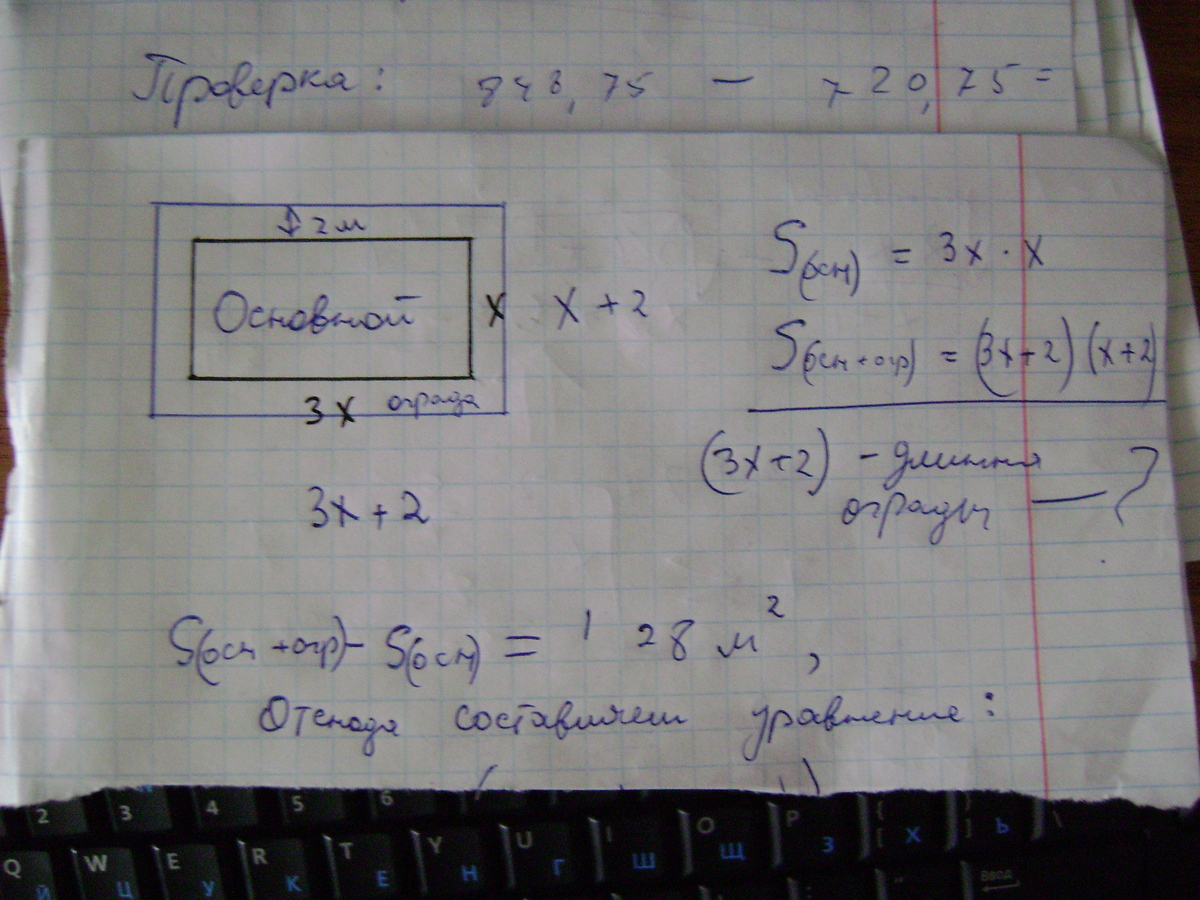 Проверка: 848,75 - 720,75 =
2 м
S(осн) = 3x · x
Основной x x + 2
S(осн + огр) = (3x + 2) (x + 2)
3x ограда
(3x + 2) - длинна
ограды - ?
3x + 2
S(осн + огр) - S(осн) = 128 м²,
Отсюда составляем уравнение:
2 3 4 5 6
Q W E R T Y U I O P { [ } ] \
Й Ц У К Е Н Г Ш Щ З Х Ъ
Ввод